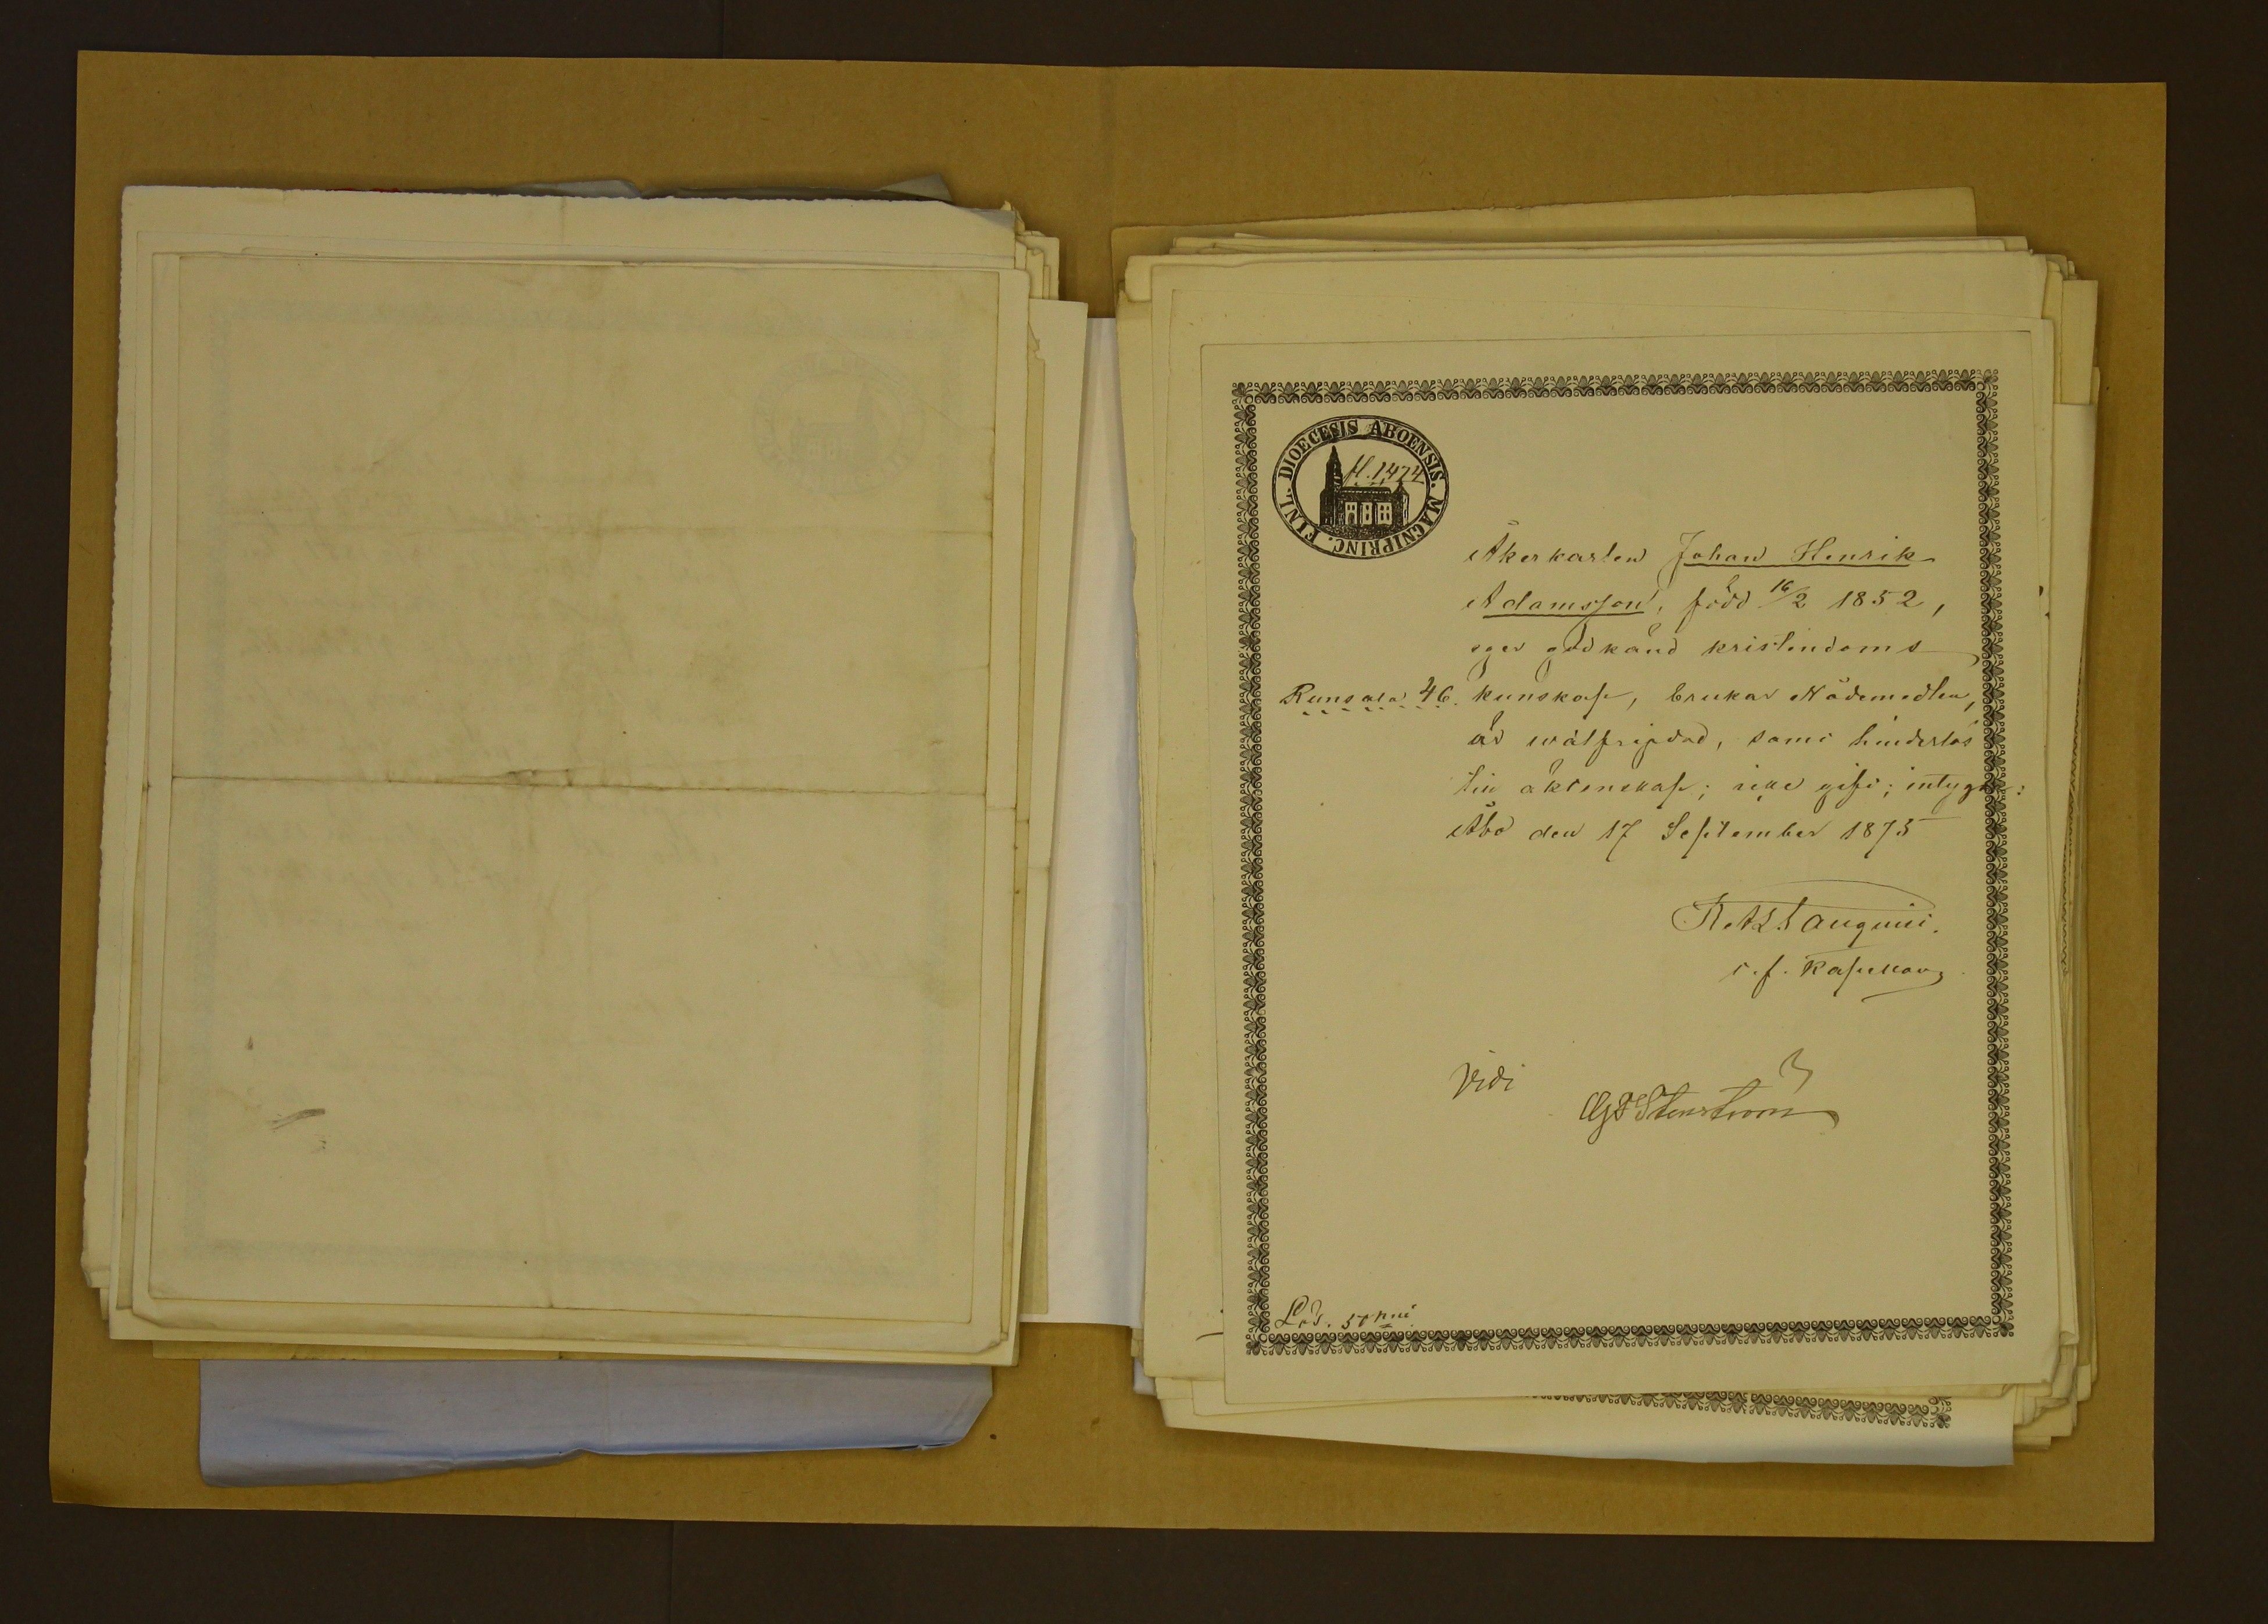 DIOECESIS ABOENSIS. MAGNIPRINC. FINL.
Åkerkarlen Johan Henrik
Adamsson, född 16/2 1852,
eger godkänd kristendoms
Runsala 46. kunskap, brukar Nådemedlen,
är wälfrejdad, samt hinderlös
till äktenskap; icke gift; intygar:
Åbo den 17 September 1875
t. f. Kaplan
Vidi
Lös. 50 pni